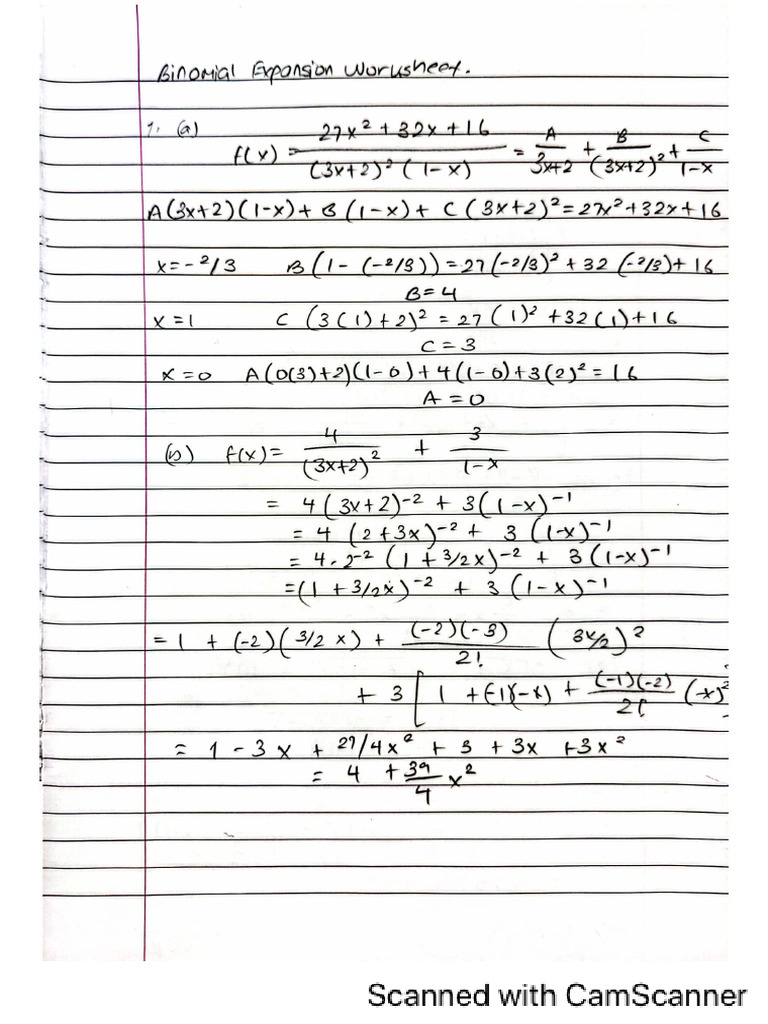 Binomial Expansion Worksheet.
1. (a) f(x) = 27x² + 32x + 16 / (3x+2)² (1-x) = A / 3x+2 + B / (3x+2)² + C / 1-x
A(3x+2)(1-x) + B(1-x) + C(3x+2)² = 27x² + 32x + 16
x = -2/3 B(1-(-2/3)) = 27(-2/3)² + 32(-2/3) + 16
B = 4
x = 1 C(3(1)+2)² = 27(1)² + 32(1) + 16
C = 3
x = 0 A(0(3)+2)(1-0) + 4(1-0) + 3(2)² = 16
A = 0
(b) f(x) = 4 / (3x+2)² + 3 / 1-x
= 4(3x+2)⁻² + 3(1-x)⁻¹
= 4 (2+3x)⁻² + 3 (1-x)⁻¹
= 4·2⁻² (1 + 3/2x)⁻² + 3(1-x)⁻¹
= (1 + 3/2x)⁻² + 3(1-x)⁻¹
= 1 + (-2)(3/2 x) + (-2)(-3) / 2! (3x/2)²
+ 3 [ 1 + (-1)(-x) + (-1)(-2) / 2! (-x)²
= 1 - 3x + 27/4x² + 3 + 3x + 3x²
= 4 + 39/4 x²
Scanned with CamScanner